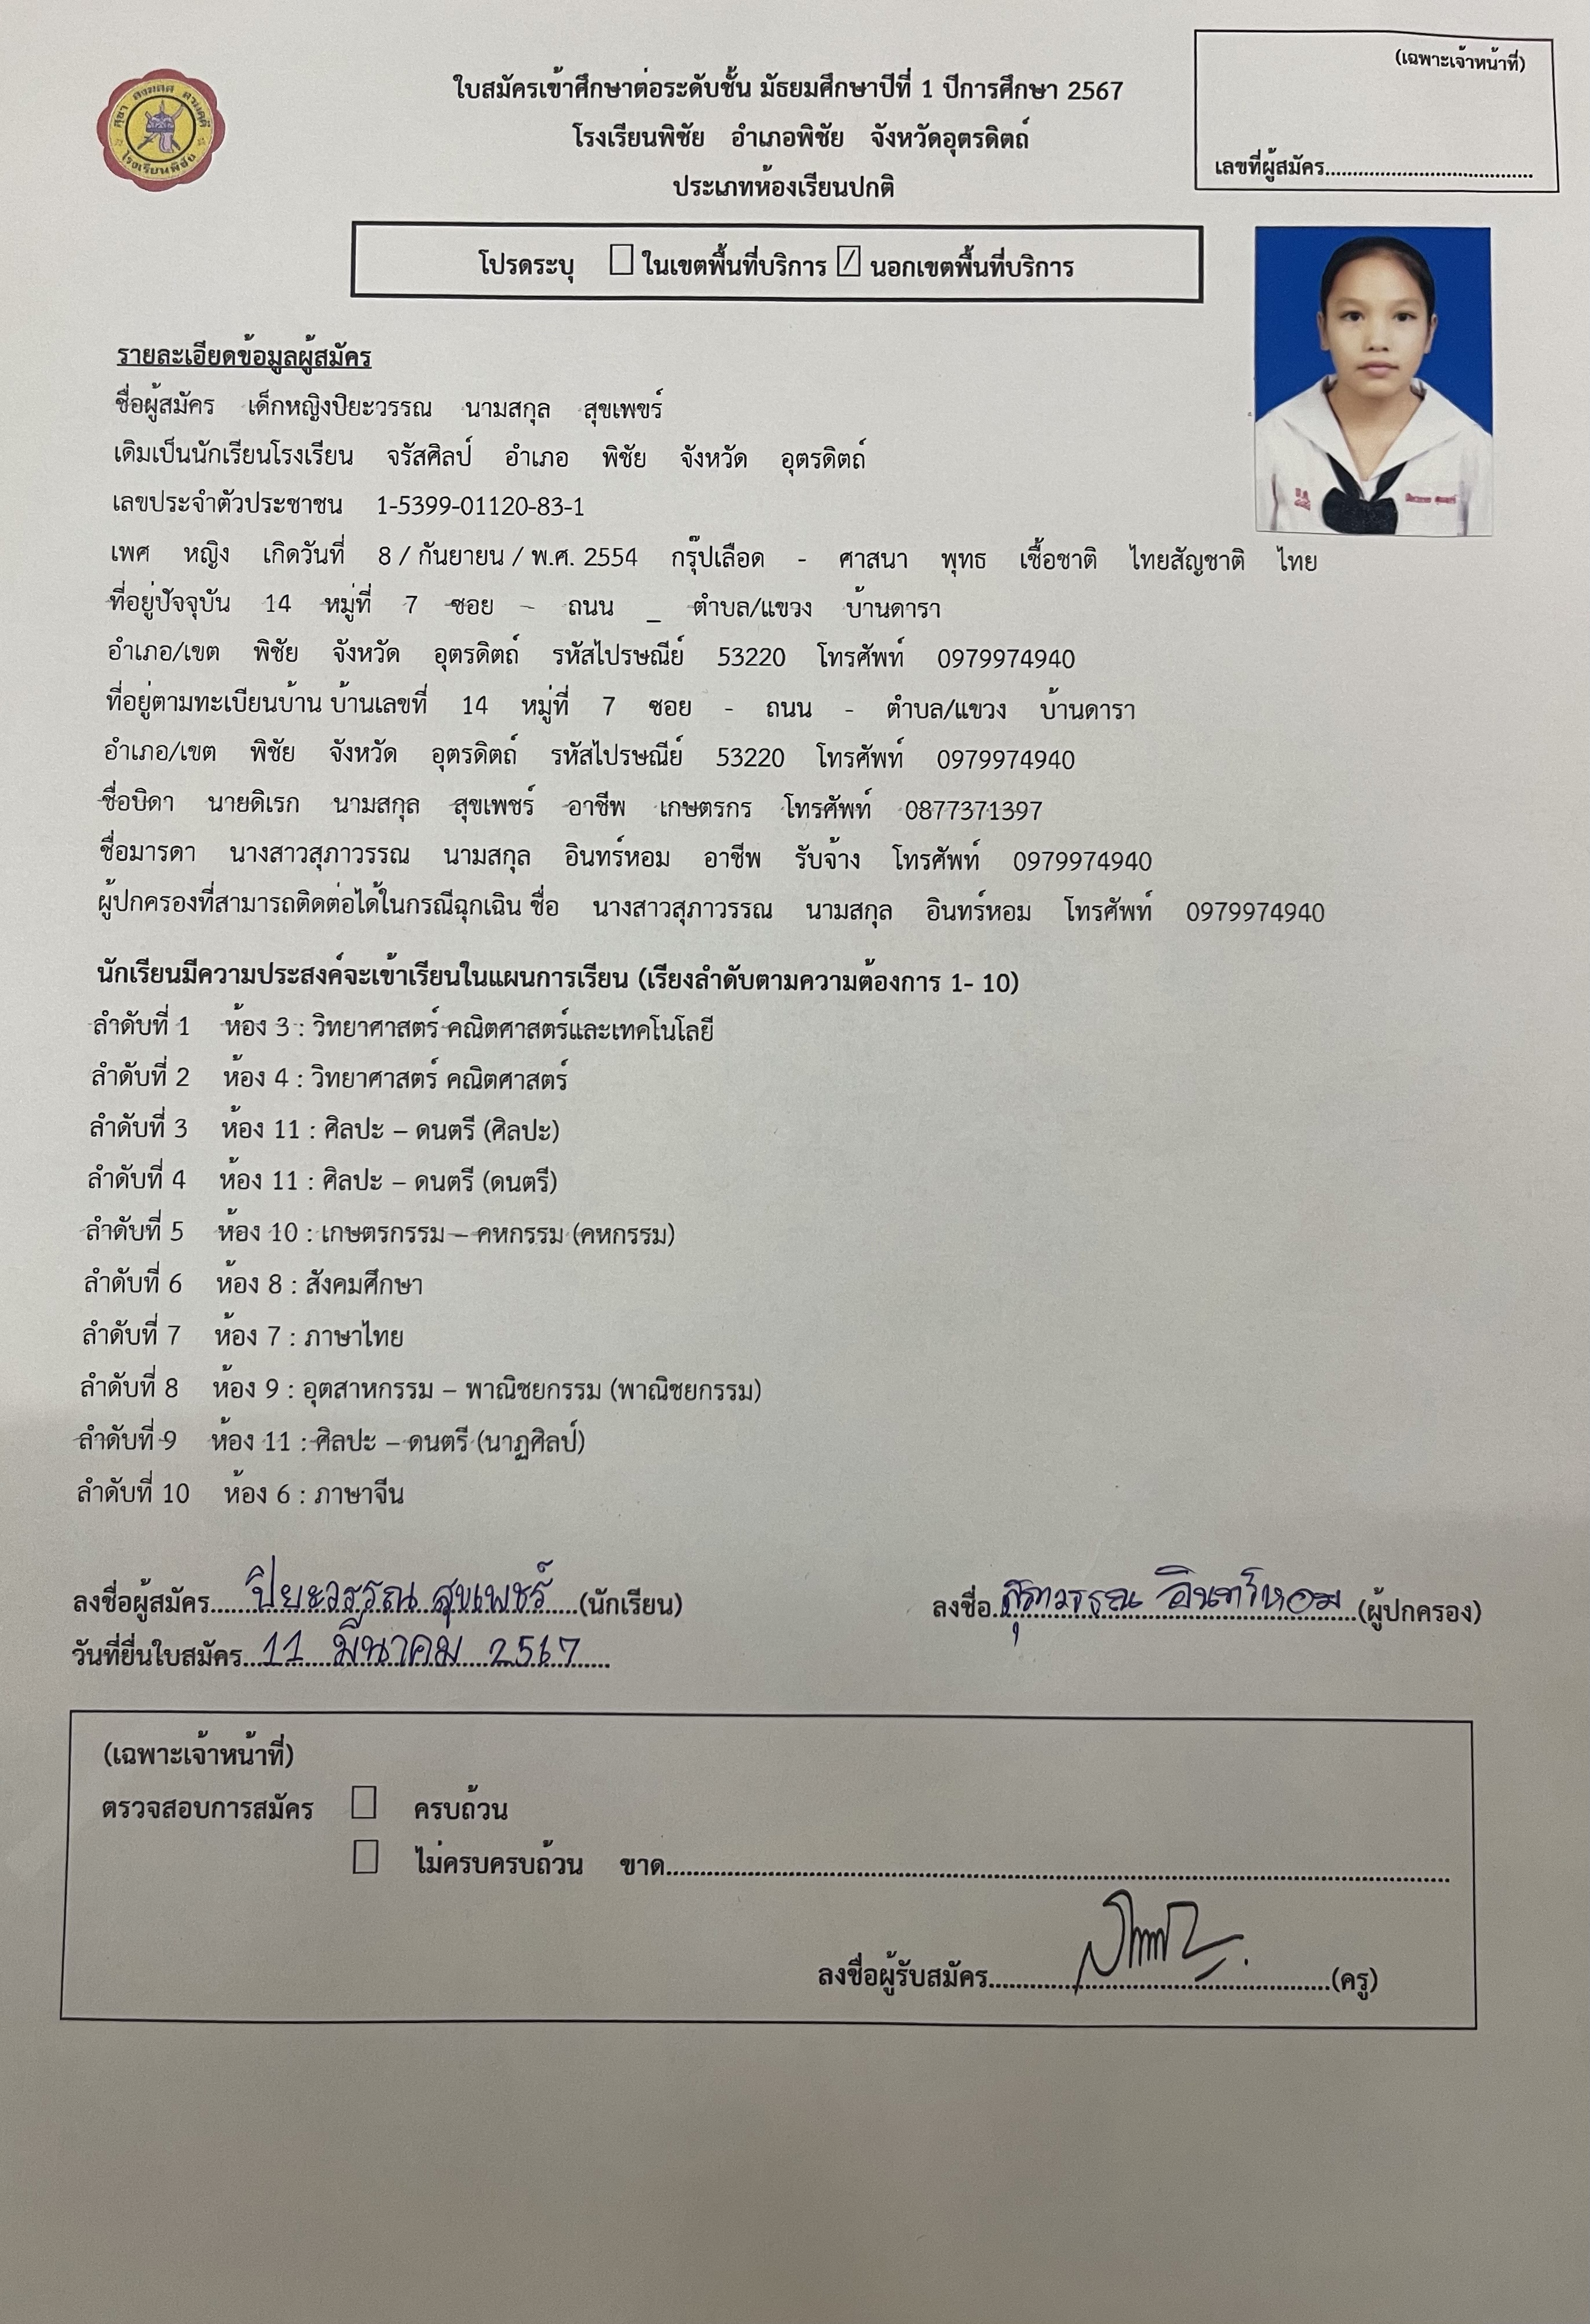 (เฉพาะเจ้าหน้าที่)
เลขที่ผู้สมัคร......................................
โรงเรียนพิชัย
ใบสมัครเข้าศึกษาต่อระดับชั้น มัธยมศึกษาปีที่ 1 ปีการศึกษา 2567
โรงเรียนพิชัย อำเภอพิชัย จังหวัดอุตรดิตถ์
ประเภทห้องเรียนปกติ
โปรดระบุ ☐ ในเขตพื้นที่บริการ ☑ นอกเขตพื้นที่บริการ
รายละเอียดข้อมูลผู้สมัคร
ชื่อผู้สมัคร เด็กหญิงปิยะวรรณ นามสกุล สุขเพขร์
เดิมเป็นนักเรียนโรงเรียน จรัสศิลป์ อำเภอ พิชัย จังหวัด อุตรดิตถ์
เลขประจำตัวประชาชน 1-5399-01120-83-1
เพศ หญิง เกิดวันที่ 8 / กันยายน / พ.ศ. 2554 กรุ๊ปเลือด - ศาสนา พุทธ เชื้อชาติ ไทยสัญชาติ ไทย
ที่อยู่ปัจจุบัน 14 หมู่ที่ 7 ซอย - ถนน _ ตำบล/แขวง บ้านดารา
อำเภอ/เขต พิชัย จังหวัด อุตรดิตถ์ รหัสไปรษณีย์ 53220 โทรศัพท์ 0979974940
ที่อยู่ตามทะเบียนบ้าน บ้านเลขที่ 14 หมู่ที่ 7 ซอย - ถนน - ตำบล/แขวง บ้านดารา
อำเภอ/เขต พิชัย จังหวัด อุตรดิตถ์ รหัสไปรษณีย์ 53220 โทรศัพท์ 0979974940
ชื่อบิดา นายดิเรก นามสกุล สุขเพชร์ อาชีพ เกษตรกร โทรศัพท์ 0877371397
ชื่อมารดา นางสาวสุภาวรรณ นามสกุล อินทร์หอม อาชีพ รับจ้าง โทรศัพท์ 0979974940
ผู้ปกครองที่สามารถติดต่อได้ในกรณีฉุกเฉิน ชื่อ นางสาวสุภาวรรณ นามสกุล อินทร์หอม โทรศัพท์ 0979974940
นักเรียนมีความประสงค์จะเข้าเรียนในแผนการเรียน (เรียงลำดับตามความต้องการ 1- 10)
ลำดับที่ 1 ห้อง 3 : วิทยาศาสตร์ คณิตศาสตร์และเทคโนโลยี
ลำดับที่ 2 ห้อง 4 : วิทยาศาสตร์ คณิตศาสตร์
ลำดับที่ 3 ห้อง 11 : ศิลปะ – ดนตรี (ศิลปะ)
ลำดับที่ 4 ห้อง 11 : ศิลปะ – ดนตรี (ดนตรี)
ลำดับที่ 5 ห้อง 10 : เกษตรกรรม – คหกรรม (คหกรรม)
ลำดับที่ 6 ห้อง 8 : สังคมศึกษา
ลำดับที่ 7 ห้อง 7 : ภาษาไทย
ลำดับที่ 8 ห้อง 9 : อุตสาหกรรม – พาณิชยกรรม (พาณิชยกรรม)
ลำดับที่ 9 ห้อง 11 : ศิลปะ – ดนตรี (นาฏศิลป์)
ลำดับที่ 10 ห้อง 6 : ภาษาจีน
ลงชื่อผู้สมัคร ปิยะวรรณ สุขเพชร์ (นักเรียน) ลงชื่อ สุภาวรรณ อินทร์หอม (ผู้ปกครอง)
วันที่ยื่นใบสมัคร 11 มีนาคม 2567
(เฉพาะเจ้าหน้าที่)
ตรวจสอบการสมัคร ☐ ครบถ้วน
☐ ไม่ครบครบถ้วน ขาด......................................
ลงชื่อผู้รับสมัคร......................................(ครู)